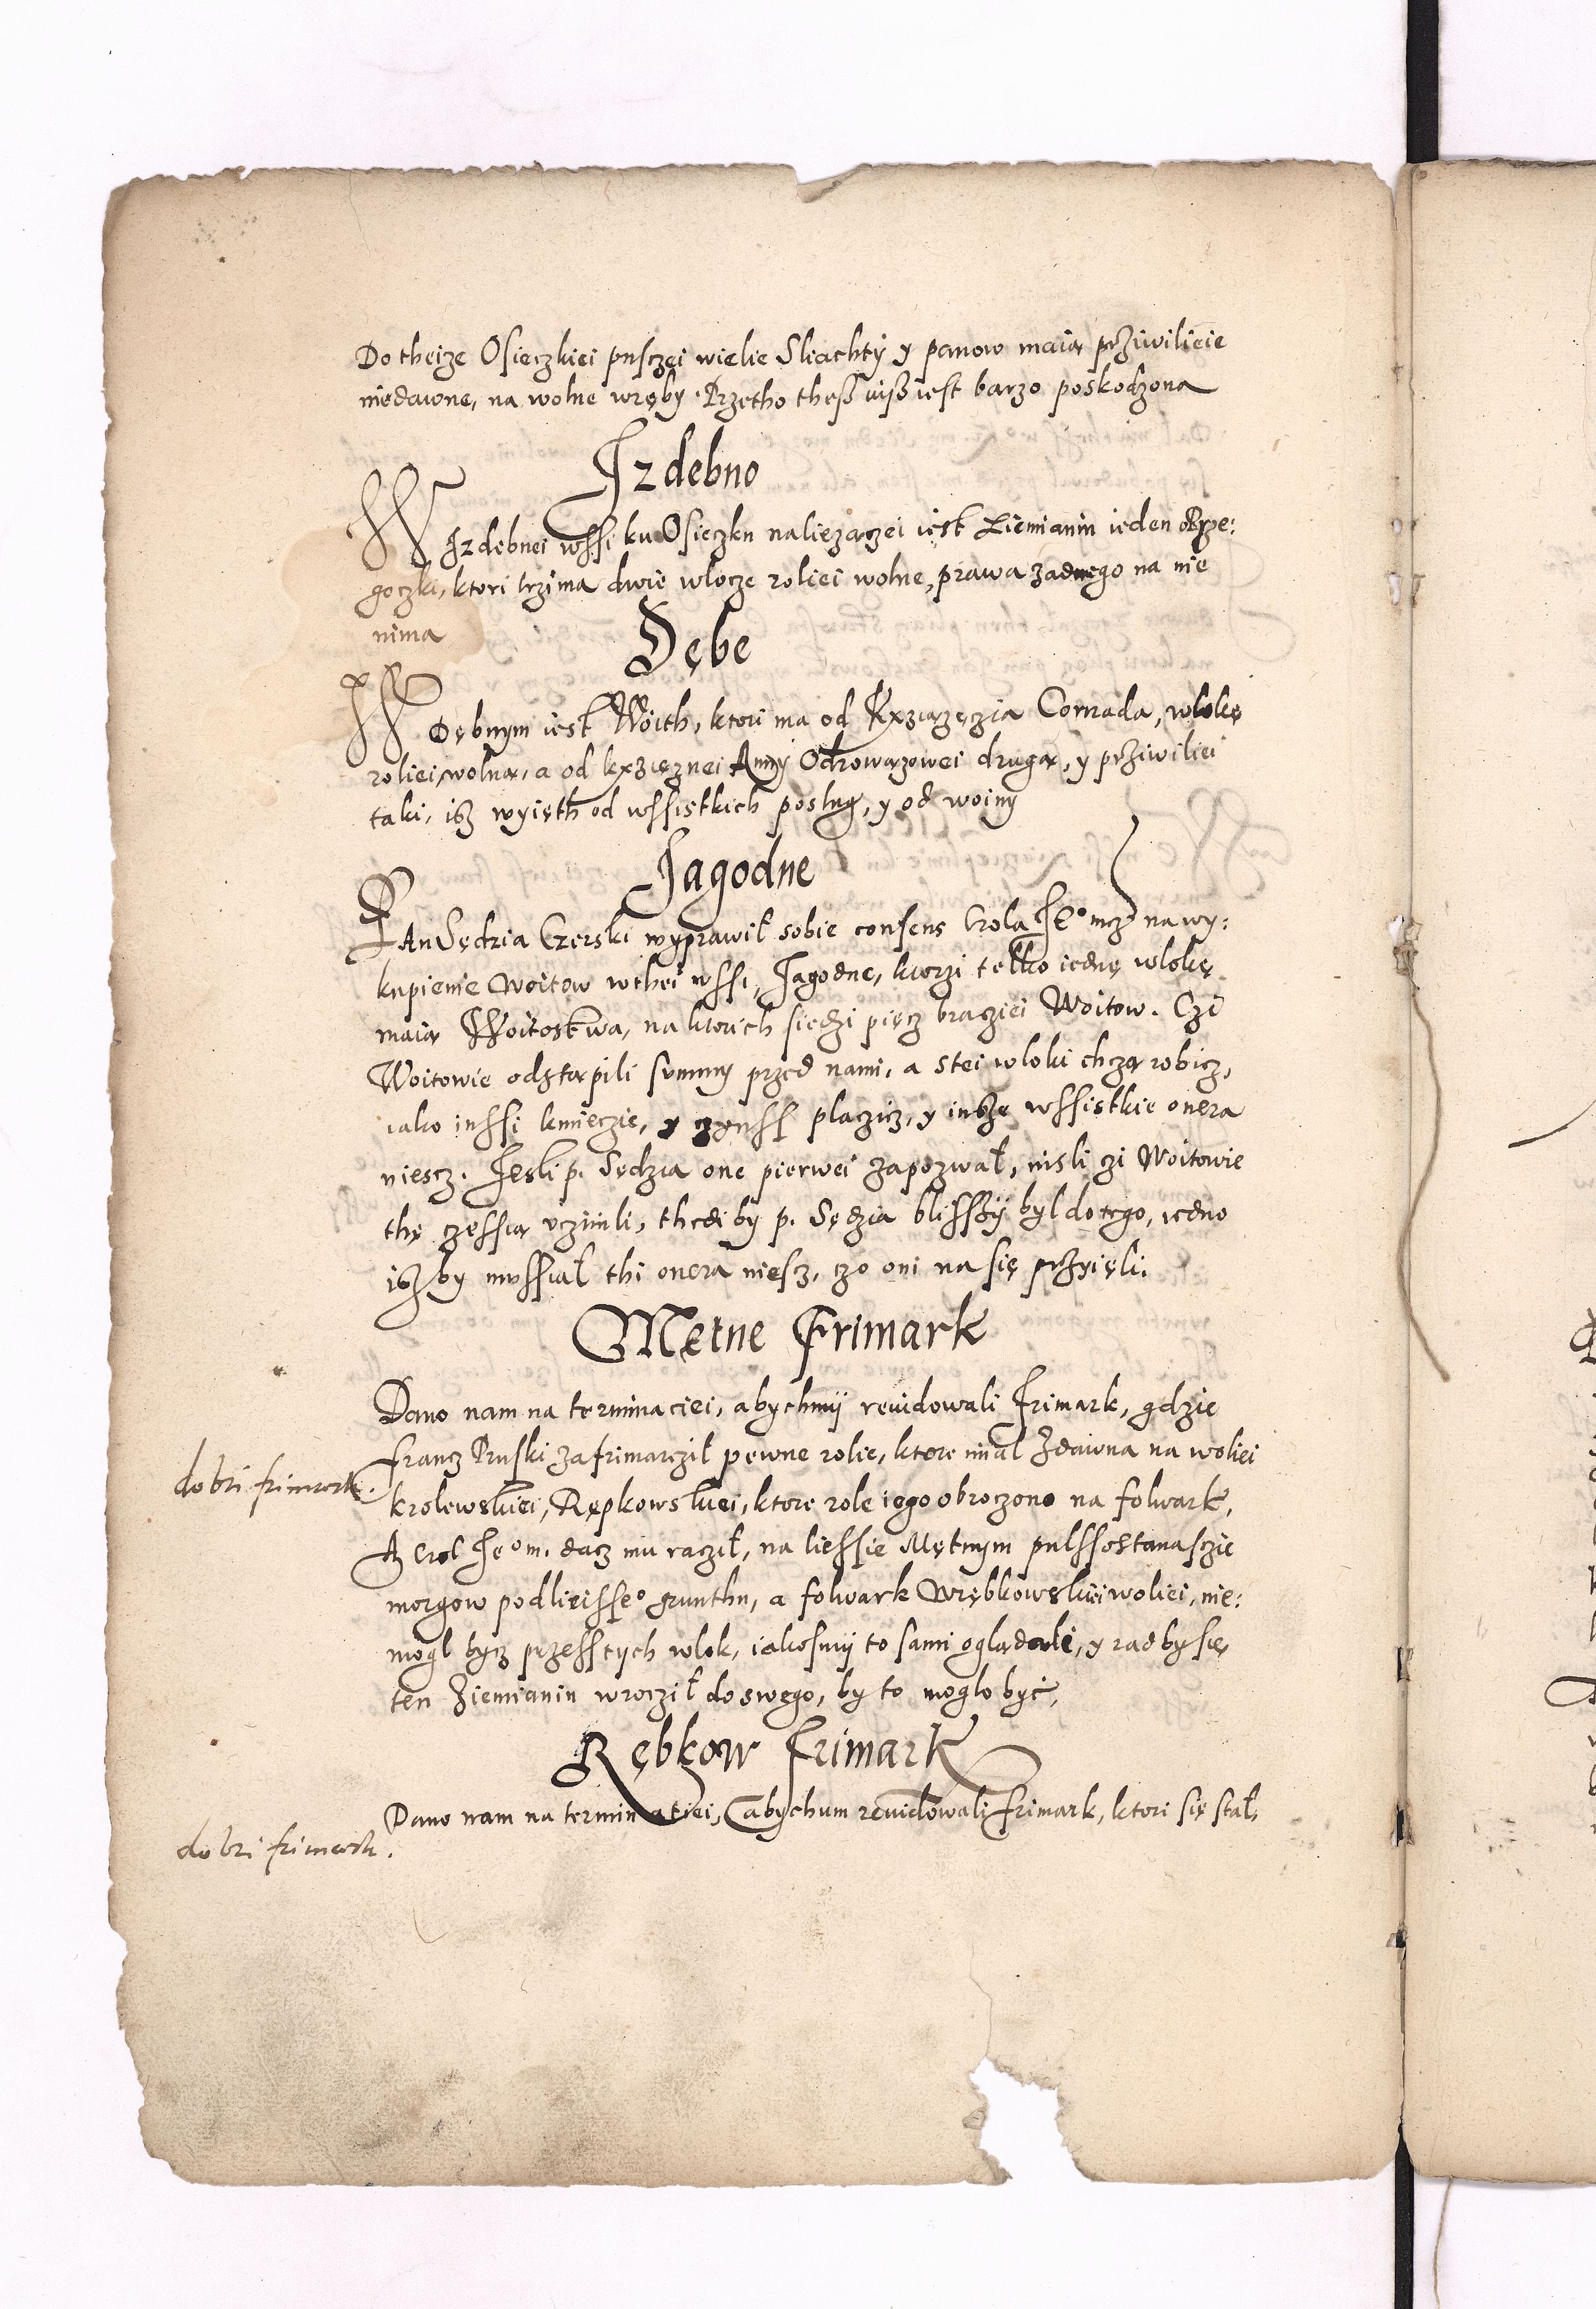 Do theize Osieczkiei pusczei wielie Sliachty y panow maią prziwilieie
niedawne, na wolne wręby. Przetho theß iuß iest barzo poskodzona
Izdebno
W Izdebnei wssi ku Osieczku należączei iest Ziemianin ieden
goczki, ktori trzima dwie wlocze roliei wolne, prawa zadnego na nie
nima
Dębe
W Dębnym iest Woith, ktori ma od Kxziązęczia Conrada, wlokę
roliei wolną, a od kxzięznei Anny Odrowązowei drugą, y prziwiliei
taki, isz wyięth od wssistkich poslug, y od woiny
Jagodne
PAn Sędzia Czerski wyprawił sobie consens Crola Je° mcz na wy:
kupienie Woitow w thei wssi, Jagodne, ktorzi telko iednę wlokę
maią Woitostwa, na ktorich siedzi pięcz braciei Woitow. Czi
Woitowie odstąpili summy przed nami, a stei wloki chczą robicz,
iako inssi kmieczie, y czynss placzicz, y insze wssistkie onera
niescz. Jesli p. Sędzia one pierwei zapozwał, nisli czi Woitowie
thę czessią uczinili, thedi by p. Sędzia blisszy byl do tego, iedno
isz by mussiał thi onera niescz, czo oni na się przyięli.
Mętne Frimark
Dano nam na terminaciei, abychmy reuidowali Frimark, gdzie
Francz Pruski zafrimarczil pewne rolie, ktore miał zdawna na woliei
dobri frimark.
krolewskiei, Rępkowskiei, ktore role iego obroczono na folwark,
A Crol Je° m. dacz mu raczil, na liessie Mętnym pulssostanasczie
morgow podlieisse° grunthu, a folwark Wrębkowskiei woliei, nie:
mogl bycz przess tych wlok, iakosmy to sami oglądali, y rad by się
ten Ziemianin wroczil do swego, by to moglo być,
Rębkow Frimark
Dano nam na terminatiei, abychum reuidowali frimark, ktori się stał,
dobri frimark.